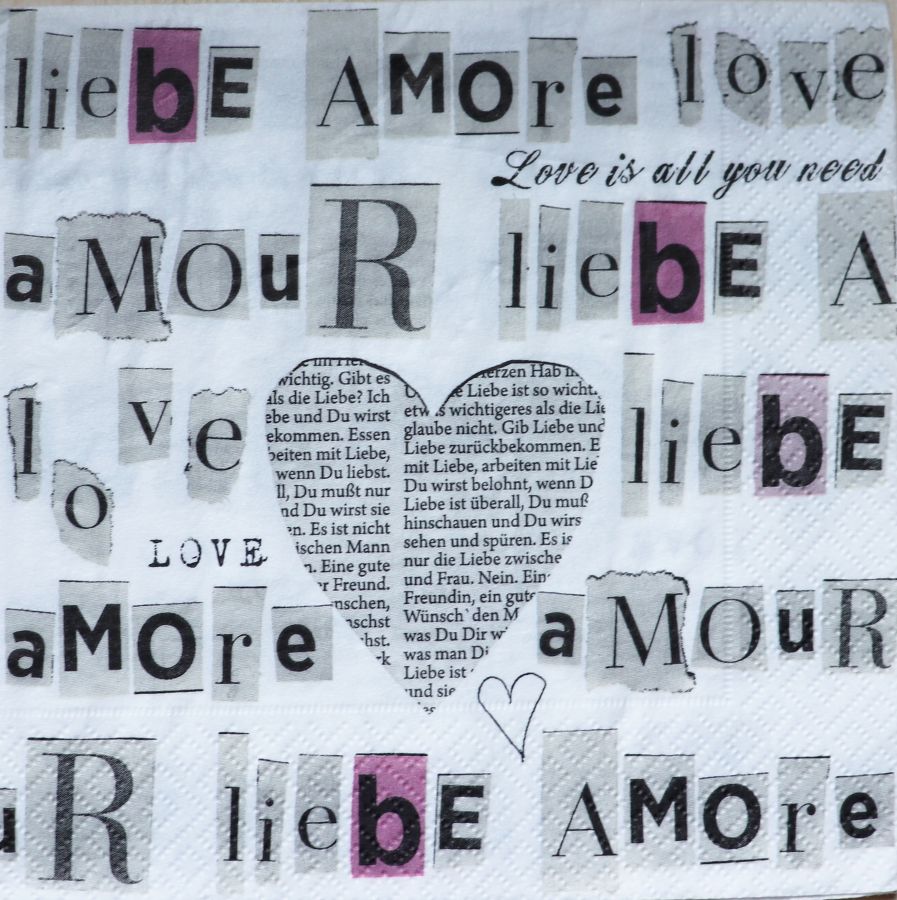 lieBE AMORe love
Love is all you need
aMOuR lieBE A
love
wichtig. Gibt es
als die Liebe? Ich
und Du wirst
Essen
mit Liebe,
wenn Du liebst.
Du mußt nur
und Du wirst sie
Es ist nicht
Mann
Eine gute
Freund.
Herzen Hab
Liebe ist so
wichtigeres als die
glaube nicht. Gib Liebe und
Liebe zurückbekommen.
mit Liebe, arbeiten mit
Du wirst belohnt, wenn D
Liebe ist überall, Du muß
hinschauen und Du wirs
sehen und spüren. Es is
nur die Liebe zwische
und Frau. Nein. Ein
Freundin, ein gute
Wünsch' den M
was Du Dir
was man Di
Liebe ist
und sie
liebE
LOVE
aMORe aMOuR
uR liebE AMOre